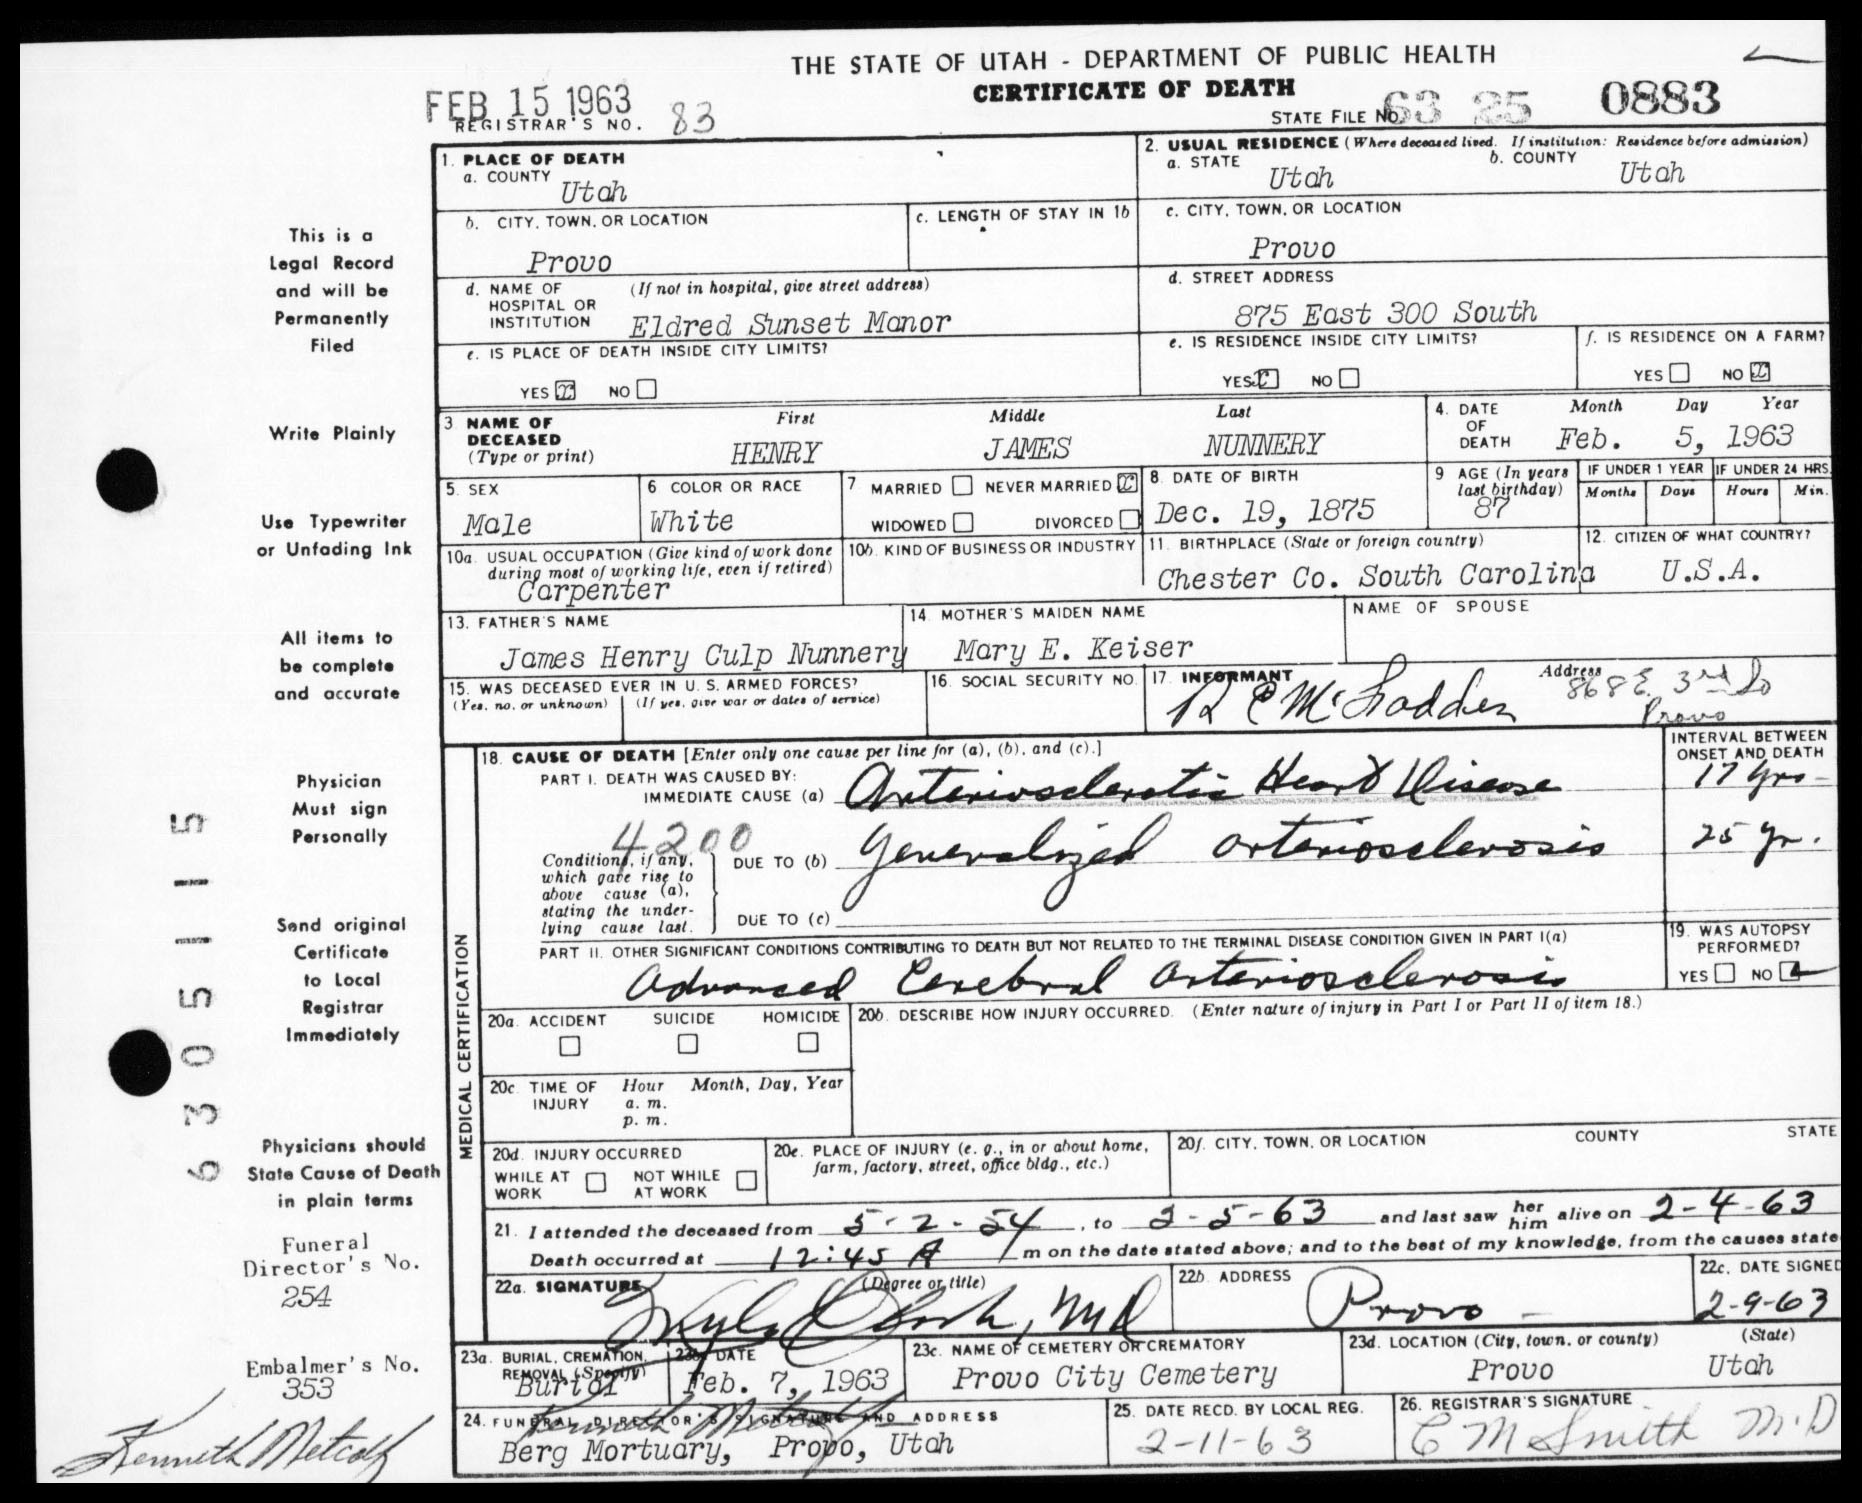 THE STATE OF UTAH - DEPARTMENT OF PUBLIC HEALTH
CERTIFICATE OF DEATH
FEB 15 1963
REGISTRAR'S NO. 83
STATE FILE NO. 63 25 0883
1. PLACE OF DEATH
a. COUNTY
Utah
2. USUAL RESIDENCE (Where deceased lived. If institution: Residence before admission)
a. STATE Utah b. COUNTY Utah
b. CITY, TOWN, OR LOCATION
Provo
c. LENGTH OF STAY IN 1b
c. CITY, TOWN, OR LOCATION
Provo
d. NAME OF HOSPITAL OR INSTITUTION (If not in hospital, give street address)
Eldred Sunset Manor
d. STREET ADDRESS
875 East 300 South
e. IS PLACE OF DEATH INSIDE CITY LIMITS?
YES x NO
e. IS RESIDENCE INSIDE CITY LIMITS?
YES x NO
f. IS RESIDENCE ON A FARM?
YES NO x
3 NAME OF DECEASED (Type or print)
First Middle Last
HENRY JAMES NUNNERY
4. DATE OF DEATH Month Day Year
Feb. 5, 1963
5. SEX
Male
6 COLOR OR RACE
White
7 MARRIED NEVER MARRIED x
WIDOWED DIVORCED
8. DATE OF BIRTH
Dec. 19, 1875
9 AGE (In years last birthday)
87
IF UNDER 1 YEAR
Months Days
IF UNDER 24 HRS.
Hours Min.
10a. USUAL OCCUPATION (Give kind of work done during most of working life, even if retired)
Carpenter
10b. KIND OF BUSINESS OR INDUSTRY
11. BIRTHPLACE (State or foreign country)
Chester Co. South Carolina
12. CITIZEN OF WHAT COUNTRY?
U.S.A.
13. FATHER'S NAME
James Henry Culp Nunnery
14. MOTHER'S MAIDEN NAME
Mary E. Keiser
NAME OF SPOUSE
15. WAS DECEASED EVER IN U. S. ARMED FORCES?
(Yes, no, or unknown) (If yes, give war or dates of service)
16. SOCIAL SECURITY NO.
17. INFORMANT
R E McFadden
Address
868 E 3rd So
Provo
MEDICAL CERTIFICATION
18. CAUSE OF DEATH [Enter only one cause per line for (a), (b), and (c).]
INTERVAL BETWEEN ONSET AND DEATH
PART I. DEATH WAS CAUSED BY:
IMMEDIATE CAUSE (a) Arteriosclerotic Heart Disease 17 yrs-
4200
Conditions, if any, which gave rise to above cause (a), stating the underlying cause last.
DUE TO (b) Generalized arteriosclerosis 25 yr.
DUE TO (c)
PART II. OTHER SIGNIFICANT CONDITIONS CONTRIBUTING TO DEATH BUT NOT RELATED TO THE TERMINAL DISEASE CONDITION GIVEN IN PART I(a)
Advanced Cerebral arteriosclerosis
19. WAS AUTOPSY PERFORMED?
YES NO
20a. ACCIDENT SUICIDE HOMICIDE
20b. DESCRIBE HOW INJURY OCCURRED. (Enter nature of injury in Part I or Part II of item 18.)
20c. TIME OF INJURY Hour Month, Day, Year
a. m.
p. m.
20d. INJURY OCCURRED
WHILE AT WORK NOT WHILE AT WORK
20e. PLACE OF INJURY (e. g., in or about home, farm, factory, street, office bldg., etc.)
20f. CITY, TOWN, OR LOCATION COUNTY STATE
21. I attended the deceased from 5-2-54, to 2-5-63 and last saw her him alive on 2-4-63
Death occurred at 12:45 A m on the date stated above; and to the best of my knowledge, from the causes state
22a. SIGNATURE (Degree or title)
MD
22b. ADDRESS
Provo -
22c. DATE SIGNED
2-9-63
23a. BURIAL, CREMATION, REMOVAL (Specify)
Burial
23b. DATE
Feb. 7, 1963
23c. NAME OF CEMETERY OR CREMATORY
Provo City Cemetery
23d. LOCATION (City, town, or county) (State)
Provo Utah
24. FUNERAL DIRECTOR'S SIGNATURE AND ADDRESS
Kenneth Metcalf
Berg Mortuary, Provo, Utah
25. DATE RECD. BY LOCAL REG.
2-11-63
26. REGISTRAR'S SIGNATURE
C M Smith M.D
This is a
Legal Record
and will be
Permanently
Filed
Write Plainly
Use Typewriter
or Unfading Ink
All items to
be complete
and accurate
Physician
Must sign
Personally
Send original
Certificate
to Local
Registrar
Immediately
Physicians should
State Cause of Death
in plain terms
Funeral
Director's No.
254
Embalmer's No.
353
Kenneth Metcalf
6305115